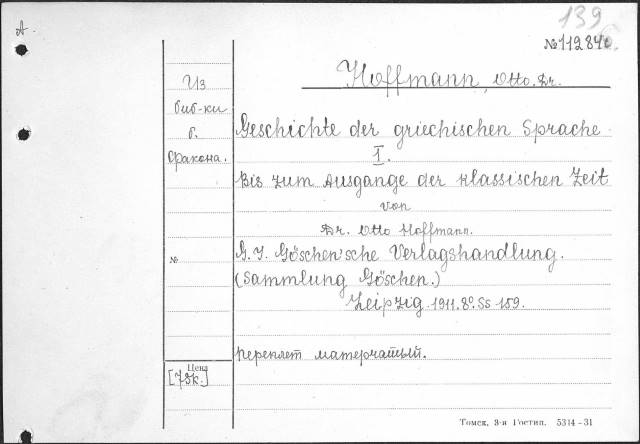 A
139
№ 11284
Hoffmann, Otto. Dr.
Из
биб-ки
б.
Фракона.
Geschichte der griechischen Sprache
I.
Bis zum Ausgange der klassischen Zeit
von
Dr. Otto Hoffmann.
№
G. J. Göschen'sche Verlagshandlung.
(Sammlung Göschen.)
Leipzig. 1911. 8º. Ss 159.
переплет матерчатый.
Цена
[75к.]
Томск, 3-я Гостип. 5314-31